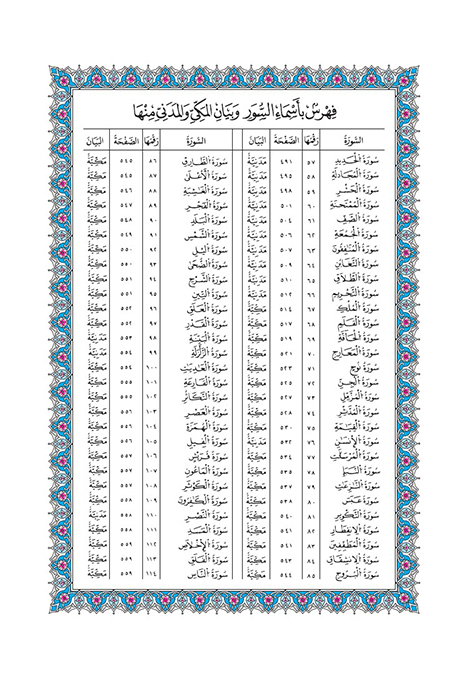 فهرس بأسماء السور وبيان المكي والمدني منها
السورة رقمها الصفحة البيان
سورة الحديد ٥٧ ٤٩١ مدنية
سورة المجادلة ٥٨ ٤٩٥ مدنية
سورة الحشر ٥٩ ٤٩٨ مدنية
سورة الممتحنة ٦٠ ٥٠١ مدنية
سورة الصف ٦١ ٥٠٤ مدنية
سورة الجمعة ٦٢ ٥٠٦ مدنية
سورة المنفقون ٦٣ ٥٠٧ مدنية
سورة التغابن ٦٤ ٥٠٩ مدنية
سورة الطلاق ٦٥ ٥١٠ مدنية
سورة التحريم ٦٦ ٥١٢ مدنية
سورة الملك ٦٧ ٥١٤ مكية
سورة القلم ٦٨ ٥١٧ مكية
سورة الحاقة ٦٩ ٥١٩ مكية
سورة المعارج ٧٠ ٥٢١ مكية
سورة نوح ٧١ ٥٢٣ مكية
سورة الجن ٧٢ ٥٢٥ مكية
سورة المزمل ٧٣ ٥٢٧ مكية
سورة المدثر ٧٤ ٥٢٨ مكية
سورة القيمة ٧٥ ٥٣٠ مكية
سورة الإنسن ٧٦ ٥٣٢ مدنية
سورة المرسلت ٧٧ ٥٣٤ مكية
سورة النبإ ٧٨ ٥٣٥ مكية
سورة النزعت ٧٩ ٥٣٧ مكية
سورة عبس ٨٠ ٥٣٨ مكية
سورة التكوير ٨١ ٥٤٠ مكية
سورة الانفطار ٨٢ ٥٤١ مكية
سورة المطففين ٨٣ ٥٤١ مكية
سورة الانشقاق ٨٤ ٥٤٣ مكية
سورة البروج ٨٥ ٥٤٤ مكية
السورة رقمها الصفحة البيان
سورة الطارق ٨٦ ٥٤٥ مكية
سورة الأعلى ٨٧ ٥٤٥ مكية
سورة الغشية ٨٨ ٥٤٦ مكية
سورة الفجر ٨٩ ٥٤٧ مكية
سورة البلد ٩٠ ٥٤٨ مكية
سورة الشمس ٩١ ٥٤٩ مكية
سورة اليل ٩٢ ٥٥٠ مكية
سورة الضحى ٩٣ ٥٥٠ مكية
سورة الشرح ٩٤ ٥٥١ مكية
سورة التين ٩٥ ٥٥١ مكية
سورة العلق ٩٦ ٥٥٢ مكية
سورة القدر ٩٧ ٥٥٢ مكية
سورة البينة ٩٨ ٥٥٣ مدنية
سورة الزلزلة ٩٩ ٥٥٤ مدنية
سورة العديت ١٠٠ ٥٥٤ مكية
سورة القارعة ١٠١ ٥٥٥ مكية
سورة التكاثر ١٠٢ ٥٥٥ مكية
سورة العصر ١٠٣ ٥٥٦ مكية
سورة الهمزة ١٠٤ ٥٥٦ مكية
سورة الفيل ١٠٥ ٥٥٦ مكية
سورة قريش ١٠٦ ٥٥٧ مكية
سورة الماعون ١٠٧ ٥٥٧ مكية
سورة الكوثر ١٠٨ ٥٥٧ مكية
سورة الكفرون ١٠٩ ٥٥٨ مكية
سورة النصر ١١٠ ٥٥٨ مدنية
سورة المسد ١١١ ٥٥٨ مكية
سورة الإخلاص ١١٢ ٥٥٩ مكية
سورة الفلق ١١٣ ٥٥٩ مكية
سورة الناس ١١٤ ٥٥٩ مكية